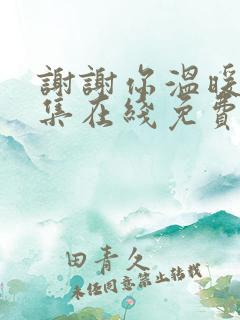 謝謝你溫暖
集在綫免費
田青久
未经同意禁止转载